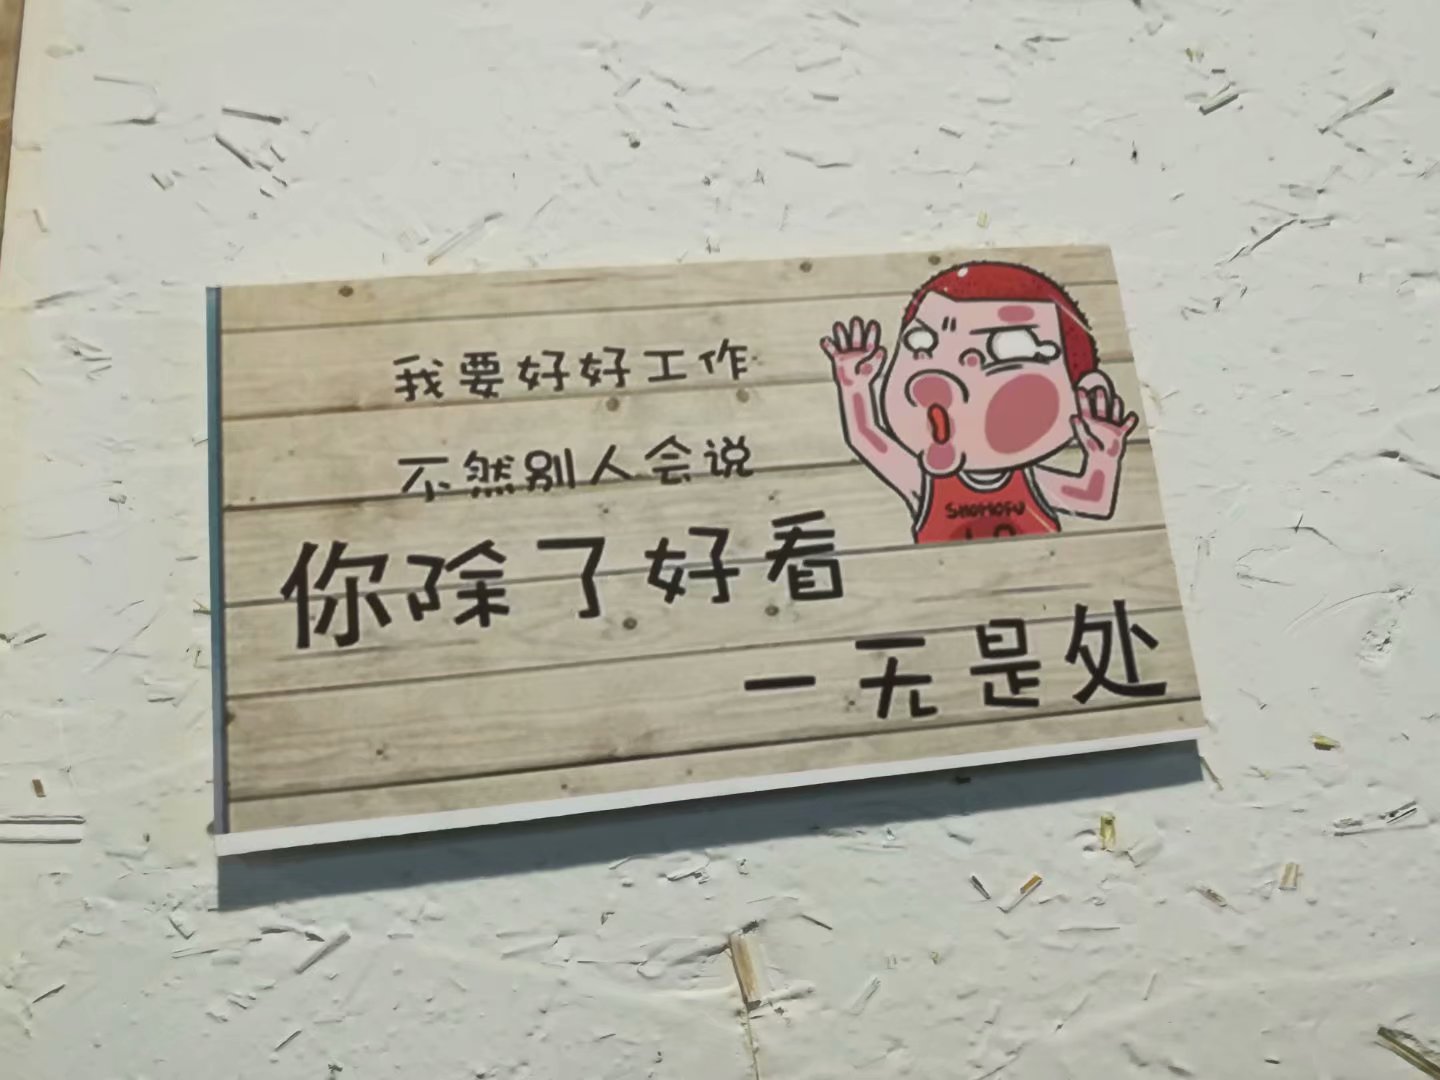 我要好好工作
不然别人会说
你除了好看
一无是处
SHOHOFU
10